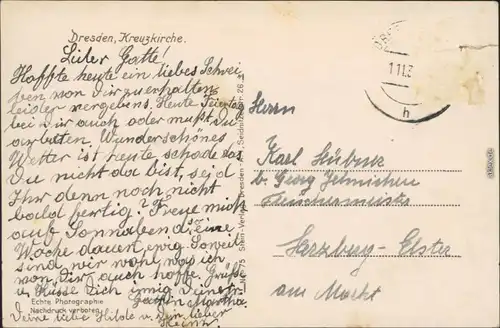 Dresden, Kreuzkirche.
Lieber Gatte!
Hoffte heute ein liebes Schrei-
ben von Dir zu erhalten
leider vergebens. Heute Feiertag
bei Dir auch oder mußt Du
arbeiten. Wunderschönes
Wetter ist heute schade das
Du nicht da bist, seid
Ihr denn noch nicht
bald fertig? Freue mich
auf Sonnabend, eine
Woche dauert ewig. Soweit
sind wir wohl was ich
von Dir auch hoffe. Grüße
u. Küsse Dich innig Deine tr.
Gattin Martha.
Deine liebe Hilde u. Dein lieber
Heinz
Echte Photographie
Nachdruck verboten
Stein-Verlag, Dresden
Seidnitzer Str. 26
1.11.3
h
Herrn
Karl
b. Georg
Fleischermeister
Herzberg-Elster
am Markt